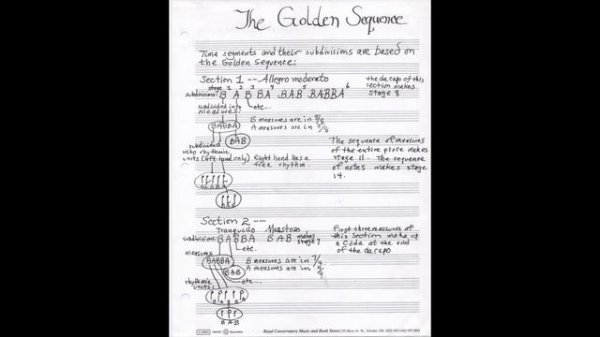 The Golden Sequence
Time segments and their subdivisions are based on
the Golden Sequence:
Section 1 -- Allegro moderato
the da capo of this
section makes
stage 8
stage 1 2 3 4 5 6
subdivisions B A B BA BAB BABBA
subdivided into
measures:
etc...
BABBA
B measures are in
A measures are in
BAB
subdivided
into rhythmic
units (left hand only)
Right hand has a
free rhythm.
The sequence of measures
of the entire piece makes
stage 11. The sequence
of notes makes stage
14.
BABBA
BAB
Section 2 --
Tranquillo Maestoso
subdivisions BABBA BAB makes
stage 7
First three measures of
this section make up
a Coda at the end
of the da capo
etc.
measures
BABBA
B measures are in
A measures are in
BAB
rhythmic
units:
etc...
BABBA
BAB
Royal Conservatory Music and Book Stores